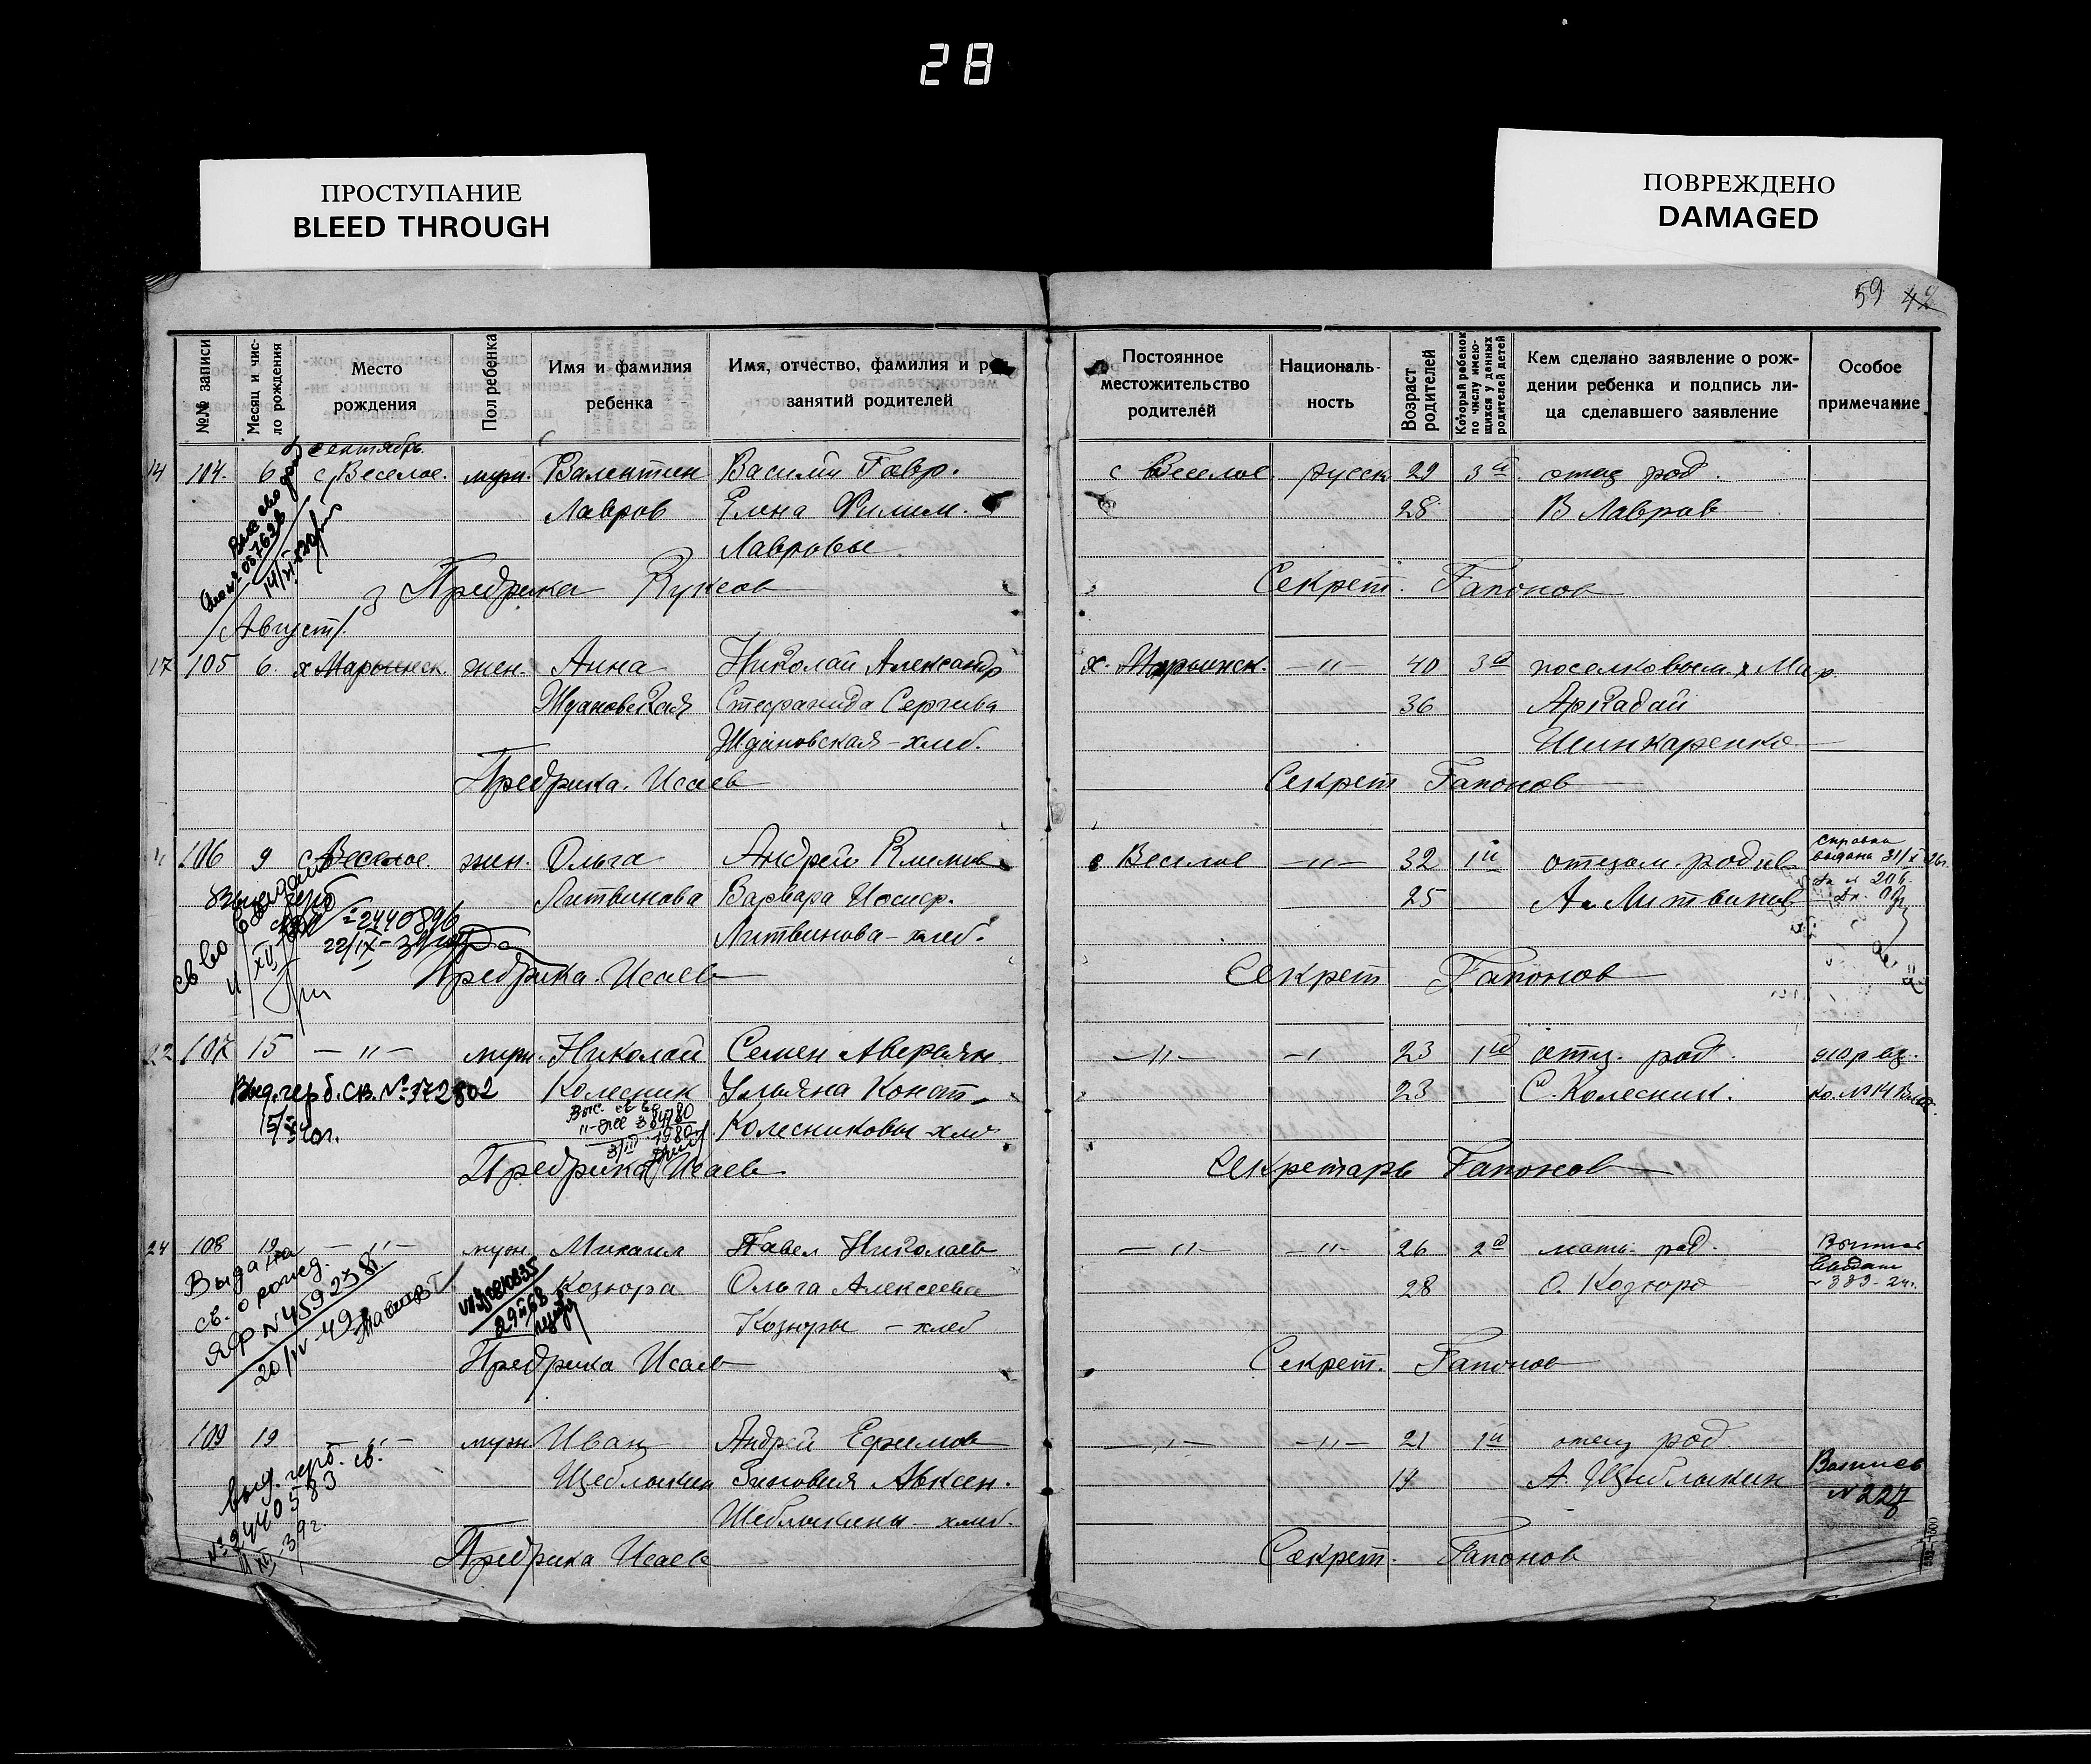 28
ПРОСТУПАНИЕ
BLEED THROUGH
ПОВРЕЖДЕНО
DAMAGED
59 42
№№ записи
Месяц и число рождения
Место рождения
Пол ребенка
Имя и фамилия ребенка
Имя, отчество, фамилия и р
занятий родителей
Постоянное местожительство родителей
Националь-
ность
Возраст родителей
Который ребенок по числу имею-
щихся у данных родителей детей
Кем сделано заявление о рож-
дении ребенка и подпись ли-
ца сделавшего заявление
Особое примечание
сентябрь
14 104. 6 с Веселое. муж. Валентин Василий Гавр. с Веселое. русск 29 3й отец род.
Лавров Елена Филим. 28 В Лавров
Лавровы
Предрика Секрет. Гапонов
/Август/.
17 105 6. х Марьинск. жен. Анна Николай Александр х. Марьинск. —"— 40 3й поселковым х Мар.
Ждановская Стефанида Сергеева 36 Аркадий
Ждановская - хлеб. Шинкаренко
Предрика. Исаев Секрет Гапонов
106 9 с Веселое. жен. Ольга Андрей Климов с Веселое —"— 32 1й отцом. родив справка выдана 31/X 26г.
Литвинова Варвара Иосиф. 25 А. Литвинов
Литвинова - хлеб.
№ 2440896
22/IX-39
Предрика. Исаев Секрет Гапонов
22 107 15 —"— муж. Николай Семен Аверьян —"— 23 1й отец. род.
Выд. герб. св. № 372802 Колесник Ульяна Конст. 23 С. Колесник.
Колесниковы хле
384780
1980
Предрика Исаев Секретарь Гапонов
24 108 19 —"— муж. Михаил Павел Николаев —"— —"— 26 2й мать род.
Выдана св. о рожд. Козюра Ольга Алексеева 28 О. Козюра
ЯР № 459238
20/IV-49
Козюры - хлеб
Предрика Исаев Секрет. Гапонов
109 19 —"— муж Иван Андрей Ефимов —"— —"— 21 1й отец род.
выд. герб. св. Щеблыкин Зиновия Авксен. 19 А. Щеблыкин
№ 2440583
39г.
Щеблыкины - хлеб.
№ 227
Предрика Исаев Секрет. Гапонов